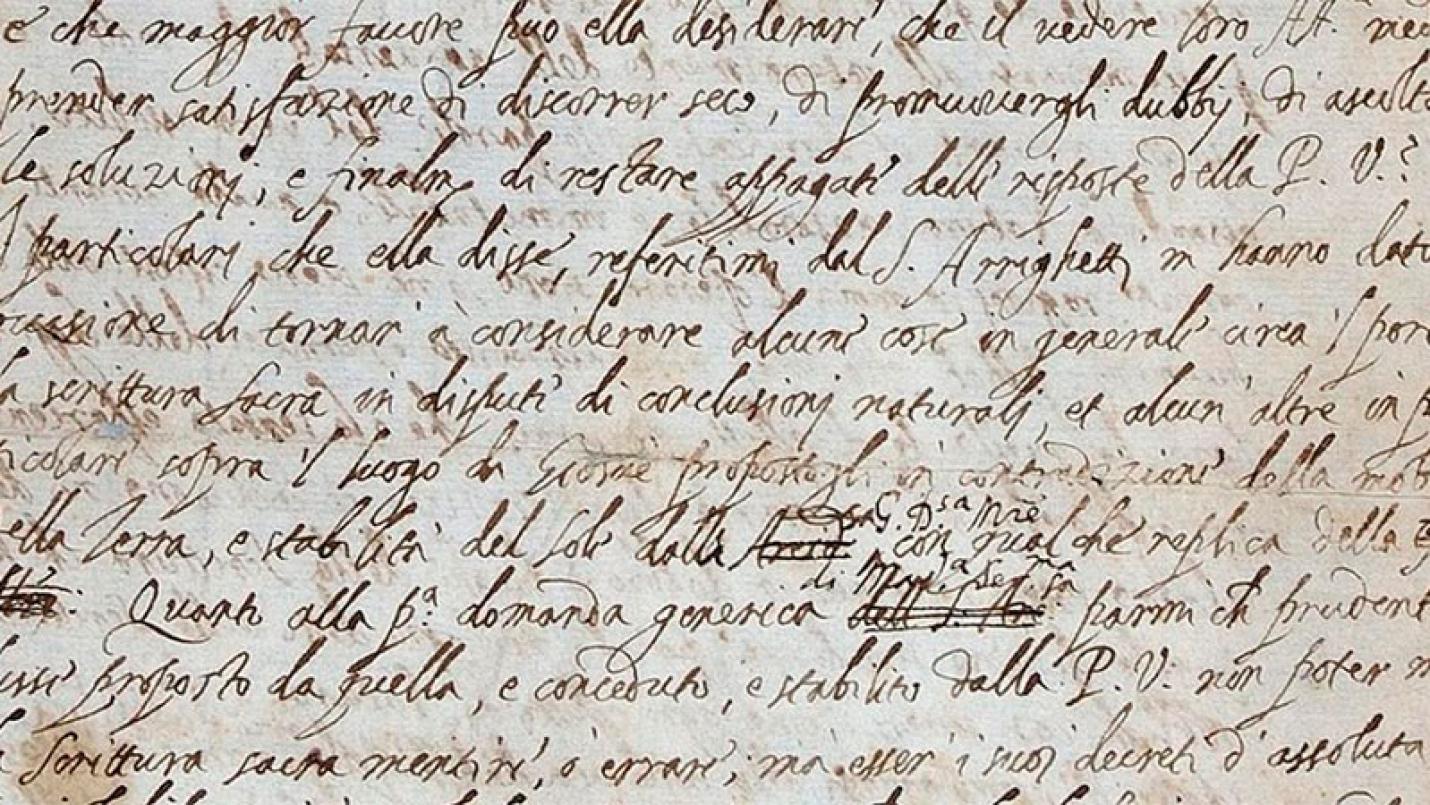 e che maggior favore puo ella desiderare, che il vedere loro AA. med
prender satisfazione di discorrer seco, di promuovergli dubbij, di ascolta
le soluzionj, e finalm. di restare appagate delle risposte della P. V.?
I particolarj che ella disse, referitimi dal S. Arrighetti m hanno dato
occasione di tornar à considerare alcune cose in generale circa 'l por
la scrittura sacra in dispute di conclusionj naturalj, et alcun' altre in p
ticolare sopra 'l luogo di Giosuè propostogli in contradizione della mob
della Terra, e stabilità del Sole dalla G. D.sa M.re con qualche replica della
Quanto alla p.a domanda generica di Mad.a Ser.ma parmi ch prudent
fusse proposto da quella, e conceduto, e stabilito dalla P. V. non poter
la Scrittura sacra mentire, ò errare; ma esser' i suoj decreti d' assoluta